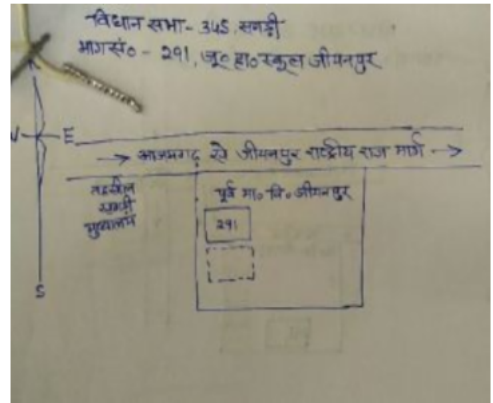 विधान सभा - 345, सगड़ी
भाग सं० - 291, जू० हा० स्कूल जीयनपुर
E
→ आजमगढ़ से जीयनपुर राष्ट्रीय राज मार्ग →
तहसील
सगड़ी
मुख्यालय
पूर्व मा० वि० जीयनपुर
291
S